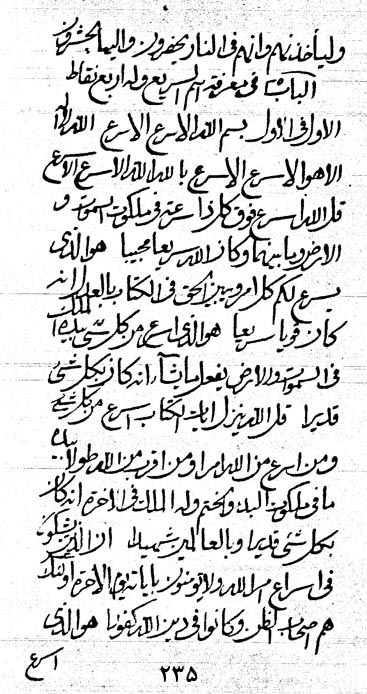 وليأخذنهم وانهم فى النار يحضرون واليها يحشرون
الباب فى معرفة اسم السريع وله اربع نقاط
الاول فى الاول بسم الله الاسرع الاسرع الله لا اله
الا هو الاسرع الاسرع بالله الله الاسرع الاسرع
قل الله اسرع فوق كل ذا سرعة فى ملكوت السموات و
الارض وما بينهما وكان الله سريعا مجيبا هو الذى
يسرع لكم كل امره بين الحق فى الكتاب بالعدل انه
كان قويا سريعا هو الذى اسرع من كل شئ بيده الملك
فى السموات والارض يفعل ما يشآء انه كان بكل شئ
قديرا قل الله ينزل ايات الكتاب اسرع من كل شئ
ومن اسرع من الله امرا ومن اقرب من الله طولا بيده
ما فى ملكوت البدء والختم وله الملك فى الاخرة انه كان
بكل شئ قديرا وبالعالمين شهيدا ان الذين يشكون
فى اسراع امر الله ولا يؤمنون باياته يوم الاخرة اولئك
هم اصحاب الظن وكانوا فى دين الله كفورا هو الذى
اسرع
٢٣٥